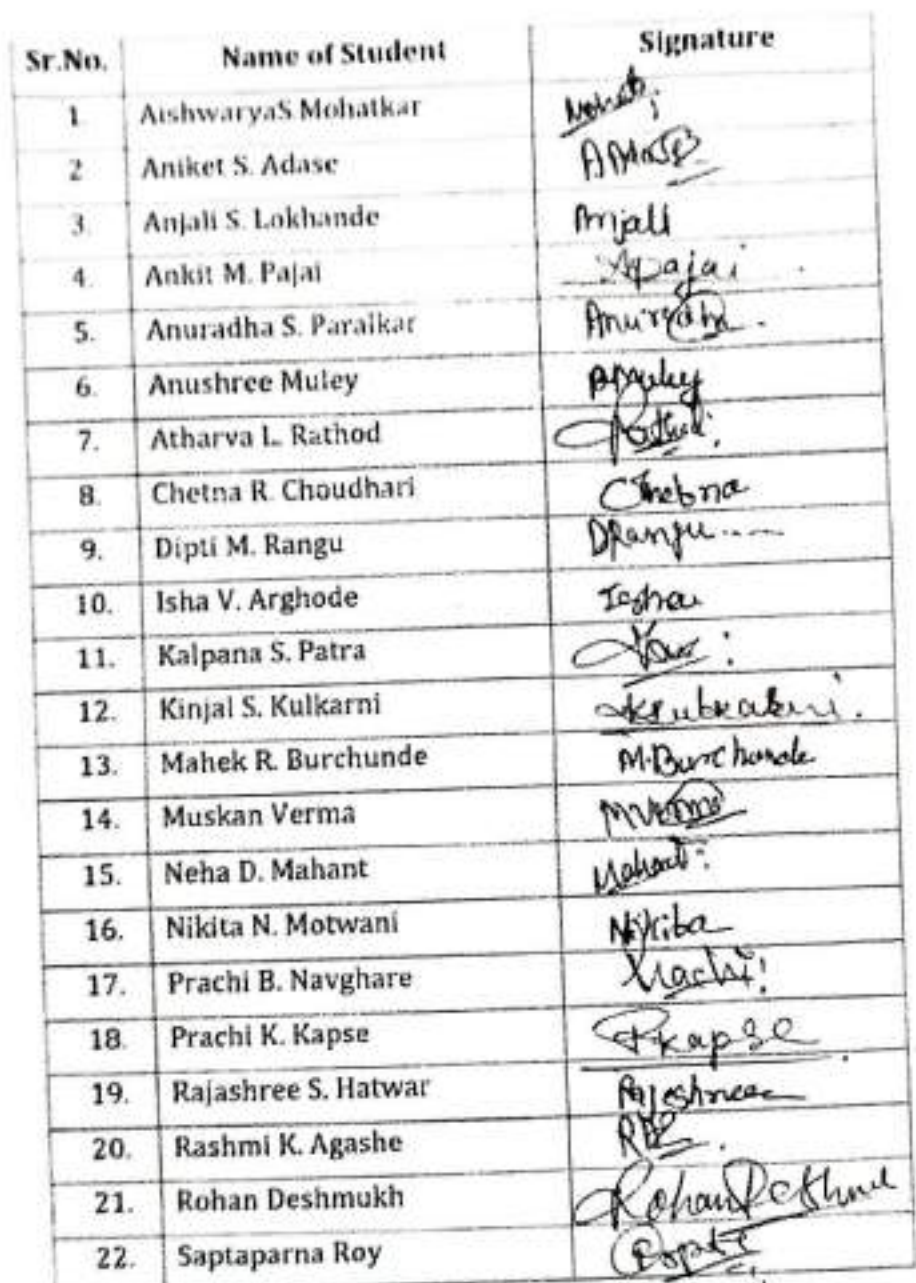 Sr.No. Name of Student Signature
1 AishwaryaS Mohatkar
2 Aniket S. Adase
3. Anjali S. Lokhande Anjali
4. Ankit M. Pajai Apajai
5. Anuradha S. Paraikar Anuradha.
6. Anushree Muley AMuley
7. Atharva L. Rathod
8. Chetna R. Choudhari Chetna
9. Dipti M. Rangu DRangu
10. Isha V. Arghode Isha
11. Kalpana S. Patra
12. Kinjal S. Kulkarni
13. Mahek R. Burchunde M.Burchunde
14. Muskan Verma MVerma
15. Neha D. Mahant Mahant
16. Nikita N. Motwani Nikita
17. Prachi B. Navghare Prachi
18. Prachi K. Kapse PKapse
19. Rajashree S. Hatwar Rajashree
20. Rashmi K. Agashe
21. Rohan Deshmukh Rohan
22. Saptaparna Roy